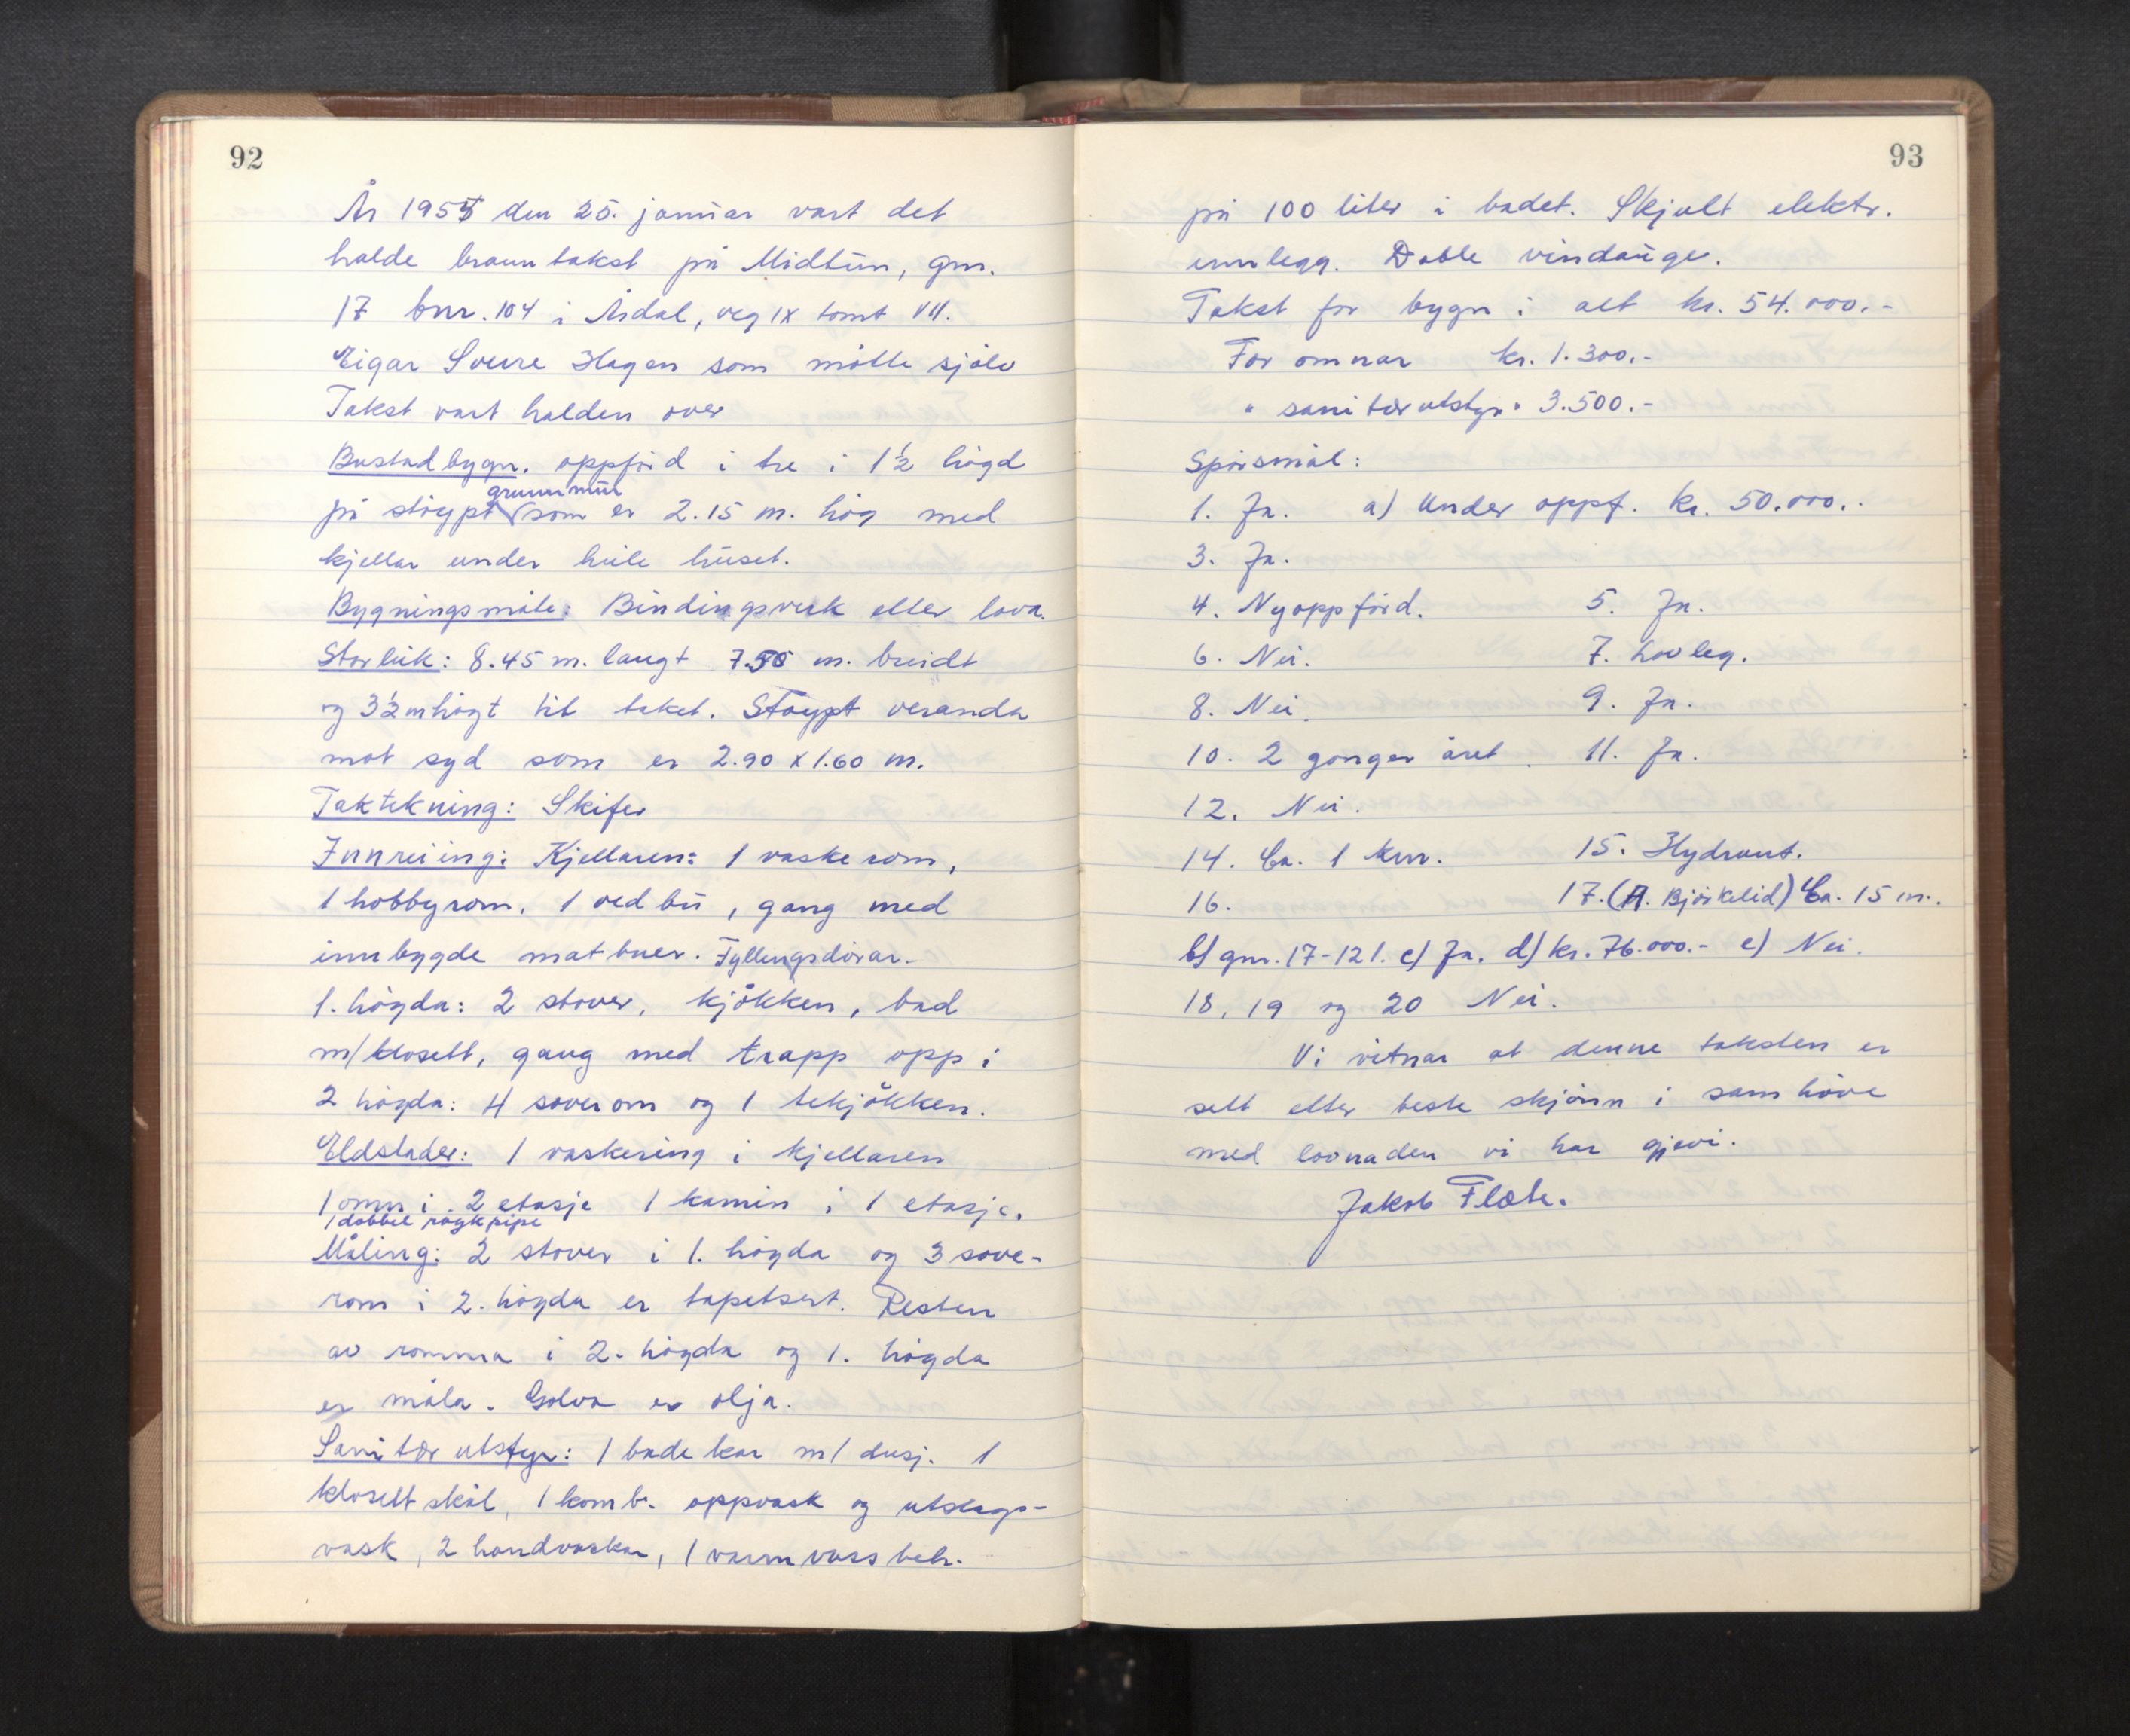 92
År 1955 den 25. januar vart det
halde branntakst på Midtun, gnr.
17 bnr. 104 i Årdal, veg IX tomt VII.
Eigar Sverre Hagen som møtte sjølv
Takst vart halden over
Bustadbygn. oppførd i tre i 1½ høgd
grunnmur
på støypt som er 2.15 m. høg med
kjellar under heile huset.
Bygningsmåte: Bindingsverk etter lova.
Storleik: 8.45 m. langt 7.50 m. breidt
og 3½ m høgt til taket. Støypt veranda
mot syd som er 2.90 x 1.60 m.
Taktekning: Skifer
Innreiing: Kjellaren: 1 vaskerom,
1 hobbyrom, 1 vedbu, gang med
innbygde matbuer. Fyllingsdører.
1. høgda: 2 stover, kjøkken, bad
m/klosett, gang med trapp opp i
2 høgda: 4 soverom og 1 tekjøkken.
Eldstader: 1 vaskering i kjellaren
1 omn i 2 etasje 1 kamin i 1 etasje.
1 dobbel røykpipe
Måling: 2 stover i 1. høgda og 3 sove-
rom i 2. høgda er tapetsert. Resten
av romma i 2. høgda og 1. høgda
er måla. Golva er olja.
Sanitær utstyr: 1 badekar m/ dusj. 1
klosettskål, 1 komb. oppvask og utslags-
vask, 2 handvaskar, 1 varmvassbeh.
93
på 100 liter i badet. Skjult elektr.
innlegg. Doble vindauge.
Takst for bygn i alt kr. 54.000.-
For omnar kr. 1.300.-
" sanitærutstyr " 3.500.-
Spørsmål:
1. Ja. a) Under oppf. kr. 50.000..
3. Ja.
4. Nyoppførd. 5. Ja.
6. Nei. 7. Lovleg.
8. Nei. 9. Ja.
10. 2 gonger året. 11. Ja.
12. Nei.
14. Ca. 1 km. 15. Hydrant.
16. 17. (A. Bjørkelid) Ca. 15 m.
b) gnr. 17-121. c) Ja. d) kr. 76.000.- e) Nei.
18, 19 og 20 Nei.
Vi vitnar at denne taksten er
sett etter beste skjønn i samhøve
med lovnaden vi har gjevi.
Jakob Flæte.